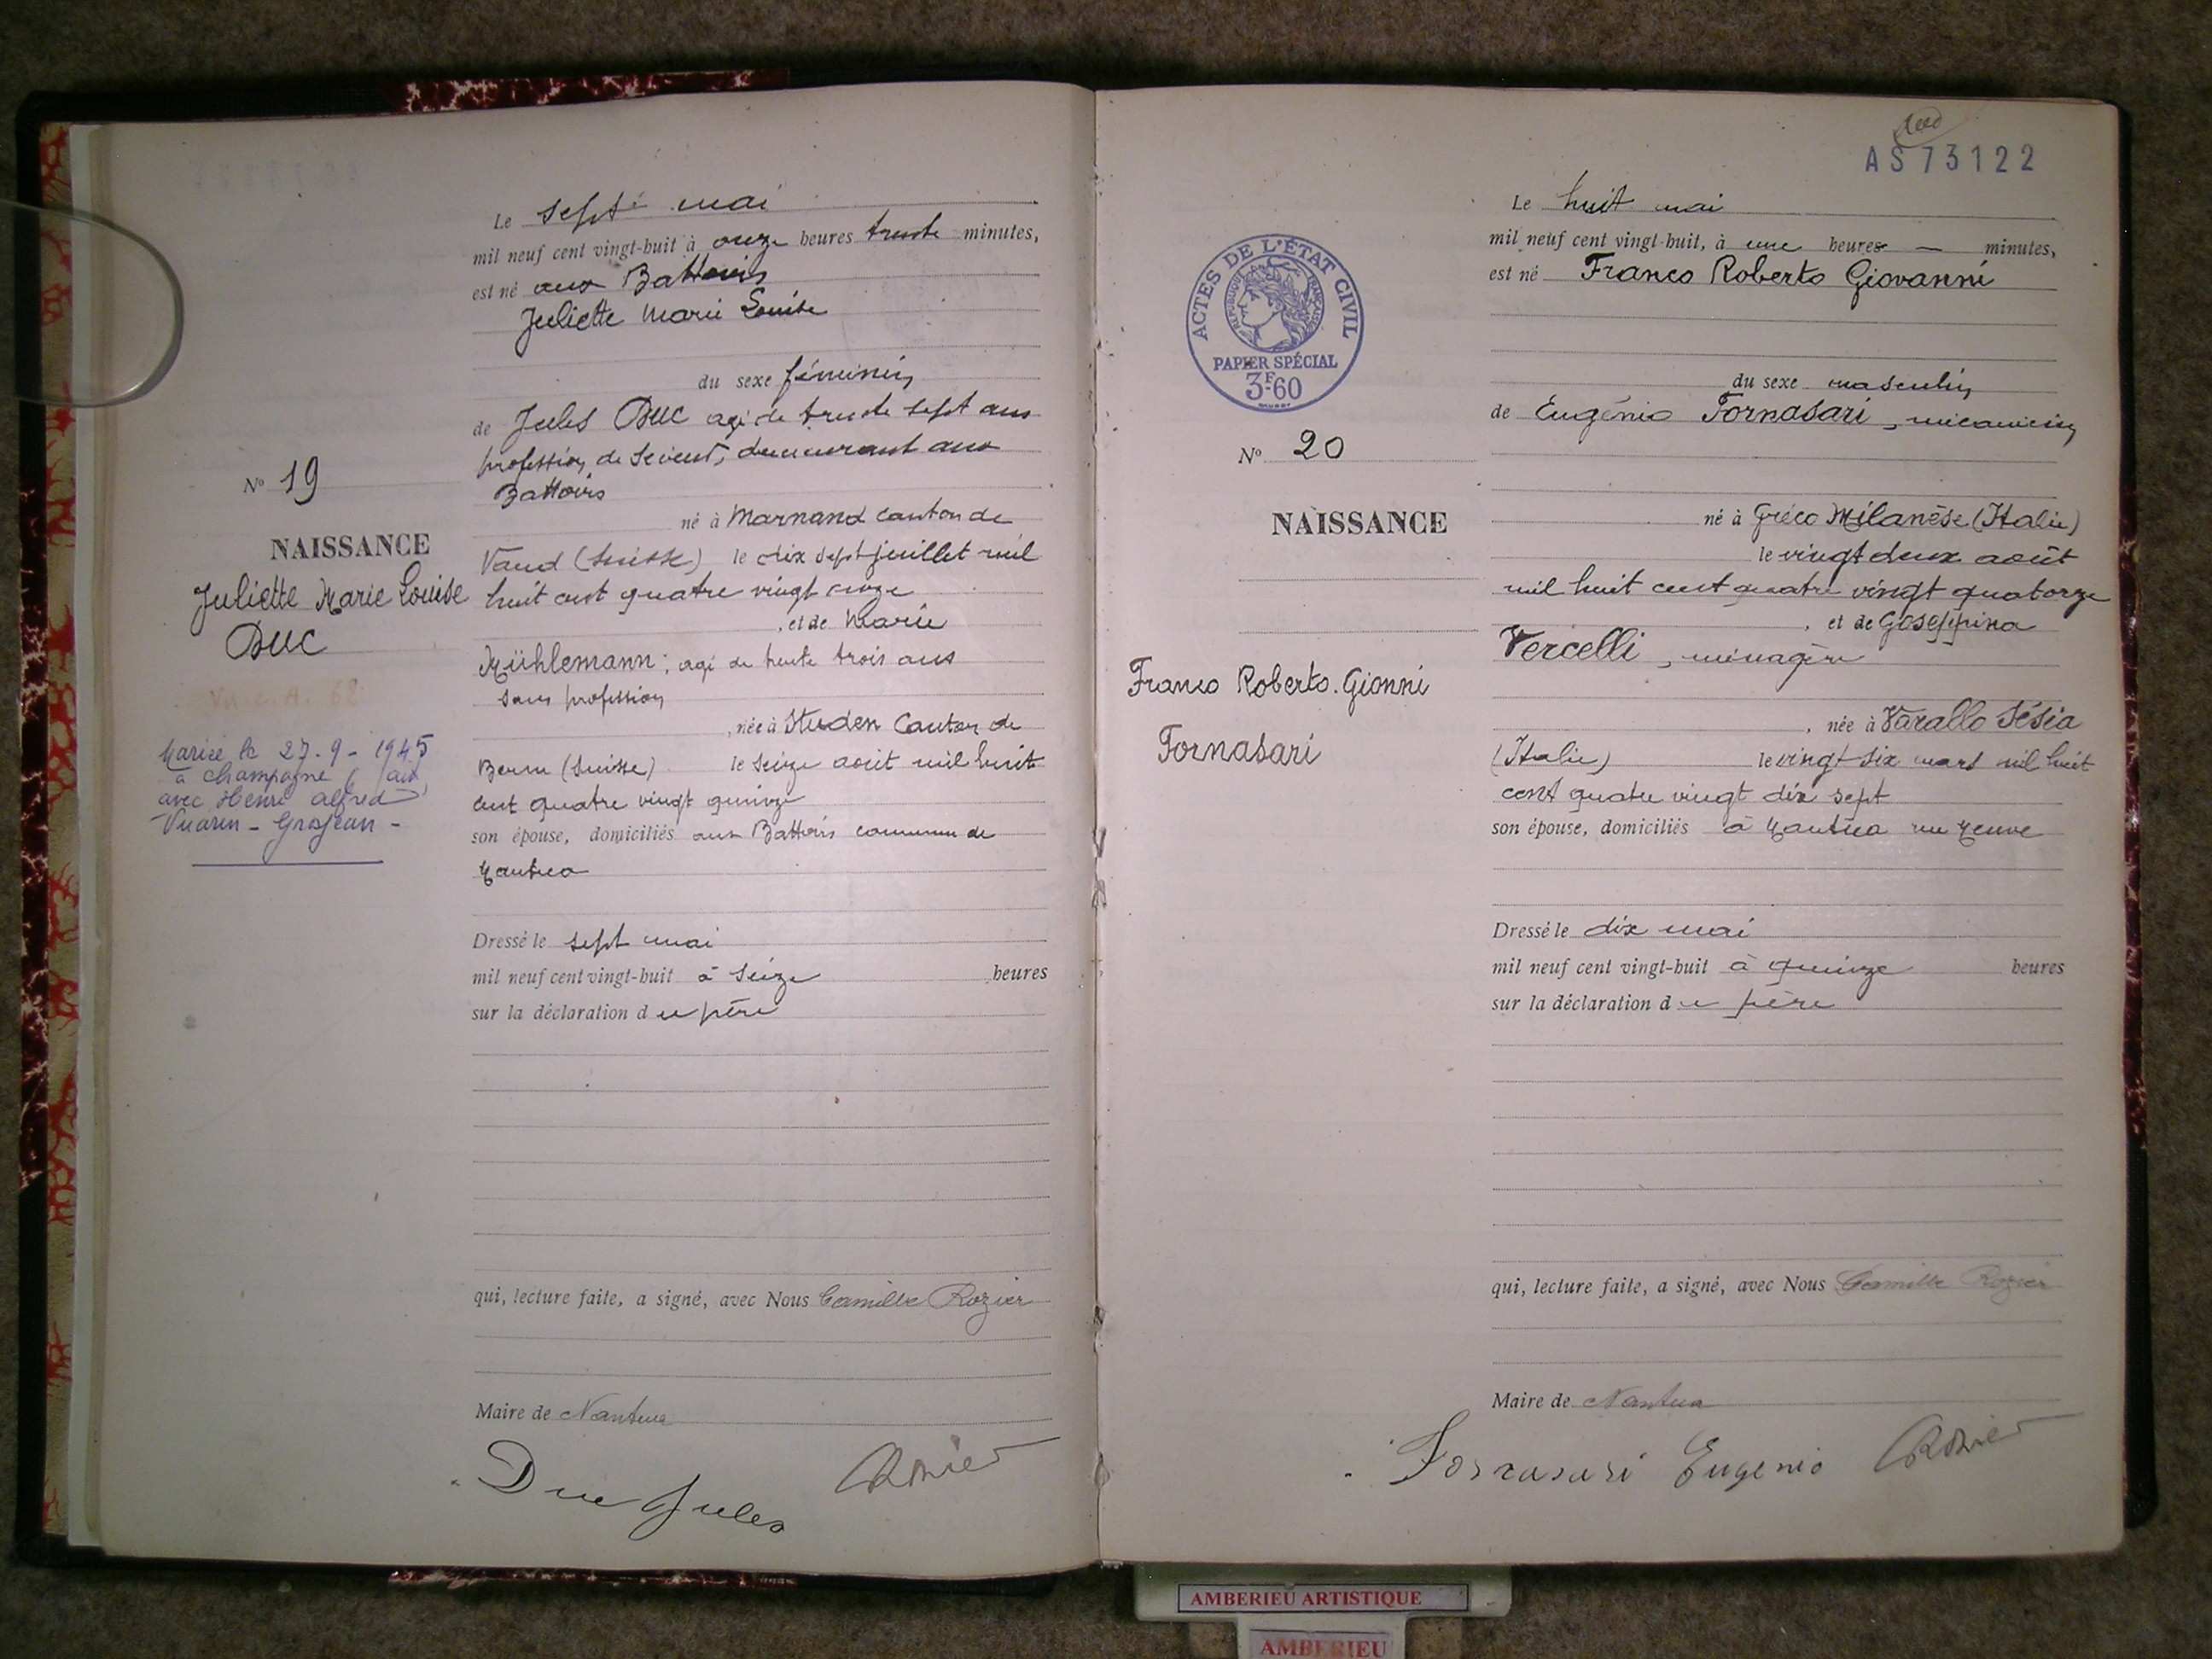 Le sept mai
mil neuf cent vingt-huit à onze heures trente minutes,
est né aux Battoirs
Juliette Marie Louise
du sexe féminin
de Jules Duc agé de trente sept ans
profession de scieur, demeurant aux
Battoirs
né à Marnand canton de
Vaud (Suisse) le dix sept juillet mil
huit cent quatre vingt onze
, et de Marie
Mühlemann, agé de trente trois ans
sans profession
, née à Studen Canton de
Bern (Suisse) le seize août mil huit
cent quatre vingt quinze
son épouse, domiciliés aux Battoirs commune de
Nantua
Dressé le sept mai
mil neuf cent vingt-huit à seize heures
sur la déclaration du père
qui, lecture faite, a signé, avec Nous Camille Rozier
Maire de Nantua
Duc Jules
Rozier
No 19
NAISSANCE
Juliette Marie Louise
DUC
Mariée le 27-9-1945
à Champagne (Ain)
avec Henri Alfred
Vuarin - Grosjean -
AS 73122
ACTES DE L'ÉTAT CIVIL
RÉPUBLIQUE FRANÇAISE
PAPIER SPÉCIAL
3F-60
No 20
NAISSANCE
Franco Roberto. Gionni
Fornasari
Le huit mai
mil neuf cent vingt-huit, à une heures — minutes,
est né Franco Roberto Giovanni
du sexe masculin
de Eugénio Fornasari, mécanicien
né à Gréco Milanèse (Italie)
le vingt deux août
mil huit cent quatre vingt quatorze
, et de Goseppina
Vercelli, ménagère
, née à Varallo Sésia
(Italie) le vingt six mars mil huit
cent quatre vingt dix sept
son épouse, domiciliés à Nantua rue Neuve
Dressé le dix mai
mil neuf cent vingt-huit à quinze heures
sur la déclaration du père
qui, lecture faite, a signé, avec Nous Camille Rozier
Maire de Nantua
Fornasari Eugenio
Rozier
AMBERIEU ARTISTIQUE
AMBERIEU